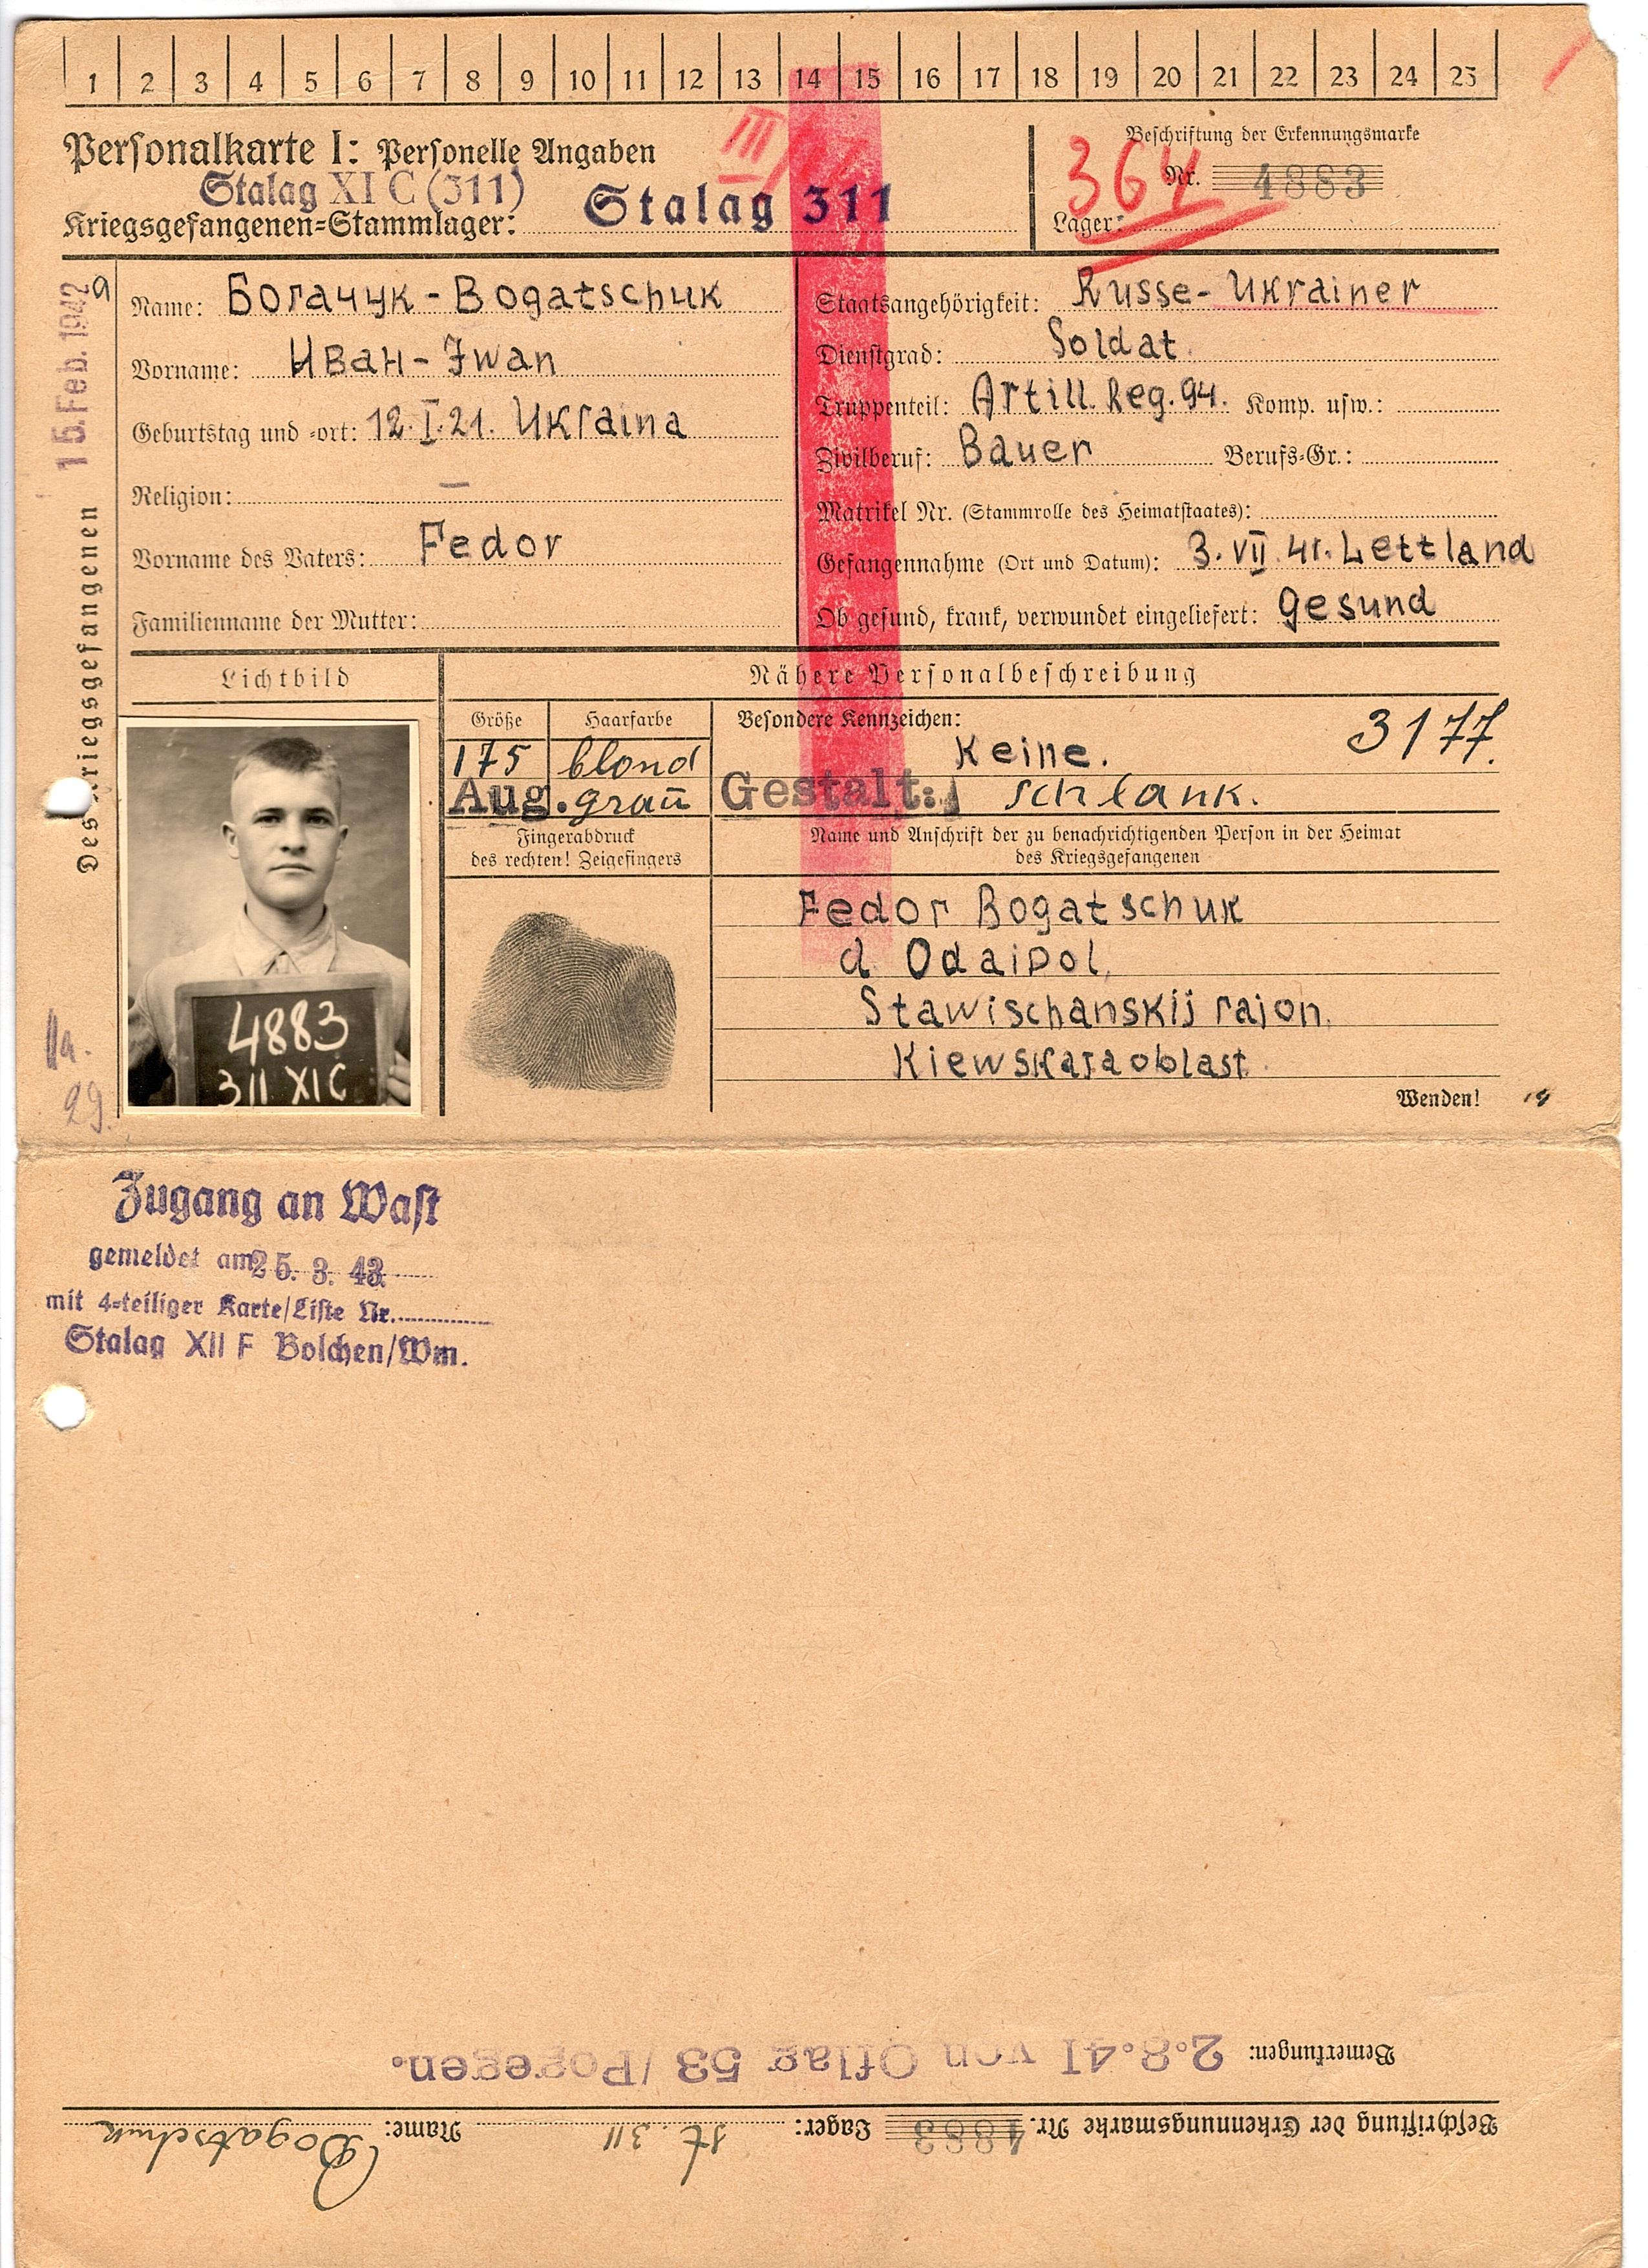 1 2 3 4 5 6 7 8 9 10 11 12 13 14 15 16 17 18 19 20 21 22 23 24 25
Personalkarte I: Personelle Angaben
III
Stalag XI C (311)
Kriegsgefangenen-Stammlager: Stalag 311
Beschriftung der Erkennungsmarke
Nr. 4883
364
Lager:
15. Feb. 1942
Des Kriegsgefangenen
Name: Богачук - Bogatschuk
Vorname: Иван - Iwan
Geburtstag und -ort: 12.I.21. Ukraina
Religion: —
Vorname des Vaters: Fedor
Familienname der Mutter:
Staatsangehörigkeit: Russe- Ukrainer
Dienstgrad: Soldat.
Truppenteil: Artill. Reg. 94. Komp. usw.:
Zivilberuf: Bauer Berufs-Gr.:
Matrikel Nr. (Stammrolle des Heimatstaates):
Gefangennahme (Ort und Datum): 3. VII. 41. Lettland
Ob gesund, krank, verwundet eingeliefert: gesund
Lichtbild
Nähere Personalbeschreibung
Größe Haarfarbe Besondere Kennzeichen:
175 blond Keine. 3177.
Aug. grau Gestalt: schlank.
Fingerabdruck
des rechten! Zeigefingers
Name und Anschrift der zu benachrichtigenden Person in der Heimat
des Kriegsgefangenen
Fedor Bogatschuk
d. Odaipol,
Stawischanskij rajon.
Kiewskaja oblast.
4883
311 XIC
29.
Wenden!
Zugang an Wast
gemeldet am 25. 3. 43.
mit 4-teiliger Karte/Liste Nr.
Stalag XII F Bolchen/Wm.
Beschriftung der Erkennungsmarke Nr. 4883 Lager: St. 311 Name: Bogatschuk
Bemerkungen: 2.8.41 von Oflag 53 /Pogegen.